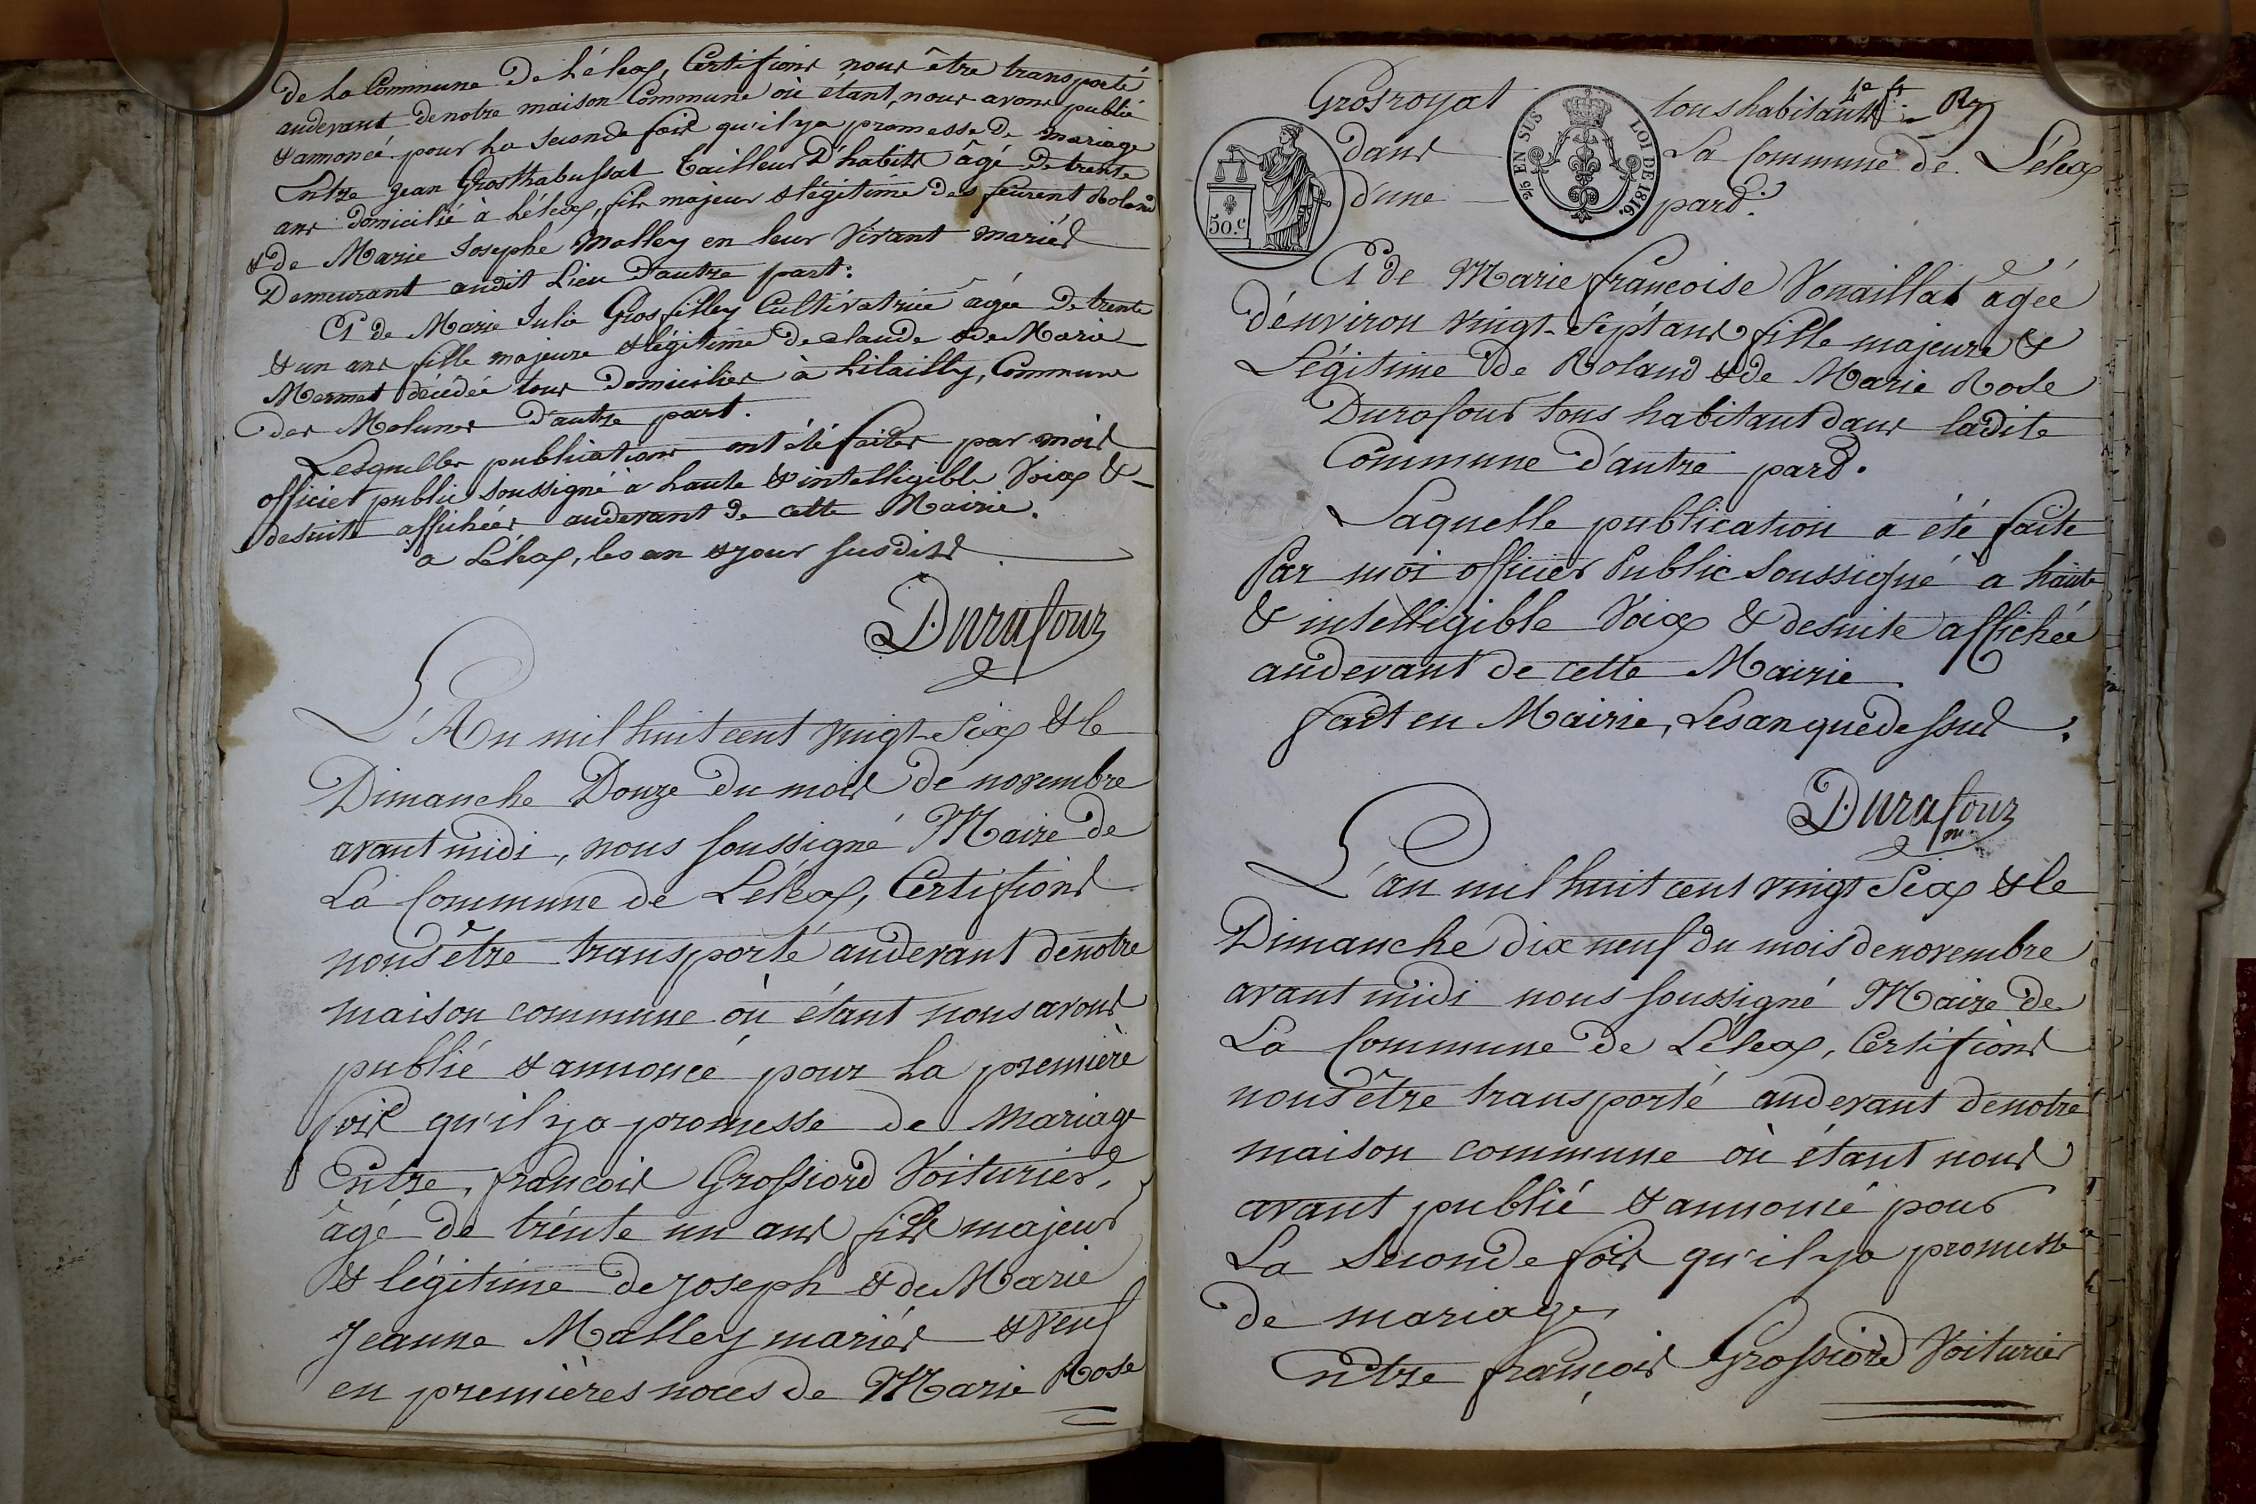 de la Commune de Lélex, Certifions nous être transporté
audevant denotre maison Commune où étant, nous avons publié
& annoncé pour la seconde fois qu'il ya promesse de mariage
Entre jean Grosthabussat tailleur D'habits âgé de trente
ans domicilié à Lélex, fils majeur & légitime des feurent Roland
& de Marie Josephe Malley en leur Vivant mariés
Demeurant audit Lieu D'autre part.
Et de Marie Julie Grosfilley Cultivatrice âgée De trente
& un ans fille majeure & légitime de claude & de Marie
Mermet décédée tous domiciliés à Lilailly, Commune
des Molunes D'autre part.
Lesquelles publications ont été faites par mois
officier public soussigné à haute & intelligible Voix &
desuite affichées audevant de cette Mairie.
a Lélex, les an & jour susdits
Durafour
L'An mil huit cent vingt-Six & le
Dimanche Douze du mois de novembre
avant midi, nous soussigné Maire de
La Commune de Lélex, Certifions
nous être transporté audevant denotre
maison commune où étant nous avons
publié & annoncé pour la première
fois qu'il ya promesse de mariage
Entre, françois Grossiord Voiturier,
âgé de trente un ans fils majeur
& légitime de Joseph & de Marie
Jeanne Malley mariés & veuf
en premières noces de Marie Rose
Grosroyat tous habitants
dans La Commune de Lélex
d'une pard.
2/5 EN SUS LOI DE 1816.
50.c
Et de Marie françoise Vouaillat âgée
d'environ vingt-sept ans fille majeure &
Légitime de Roland & de Marie Rose
Durafour tous habitant dans ladite
Commune d'autre pard.
Laquelle publication a été faite
Par moi officier Public Soussigné a haute
& intelligible Voix & desuite affichée
audevant de cette Mairie
fait en Mairie, Les an que dessus.
Durafour
m.
L'an mil huit cent vingt Six & le
Dimanche dix neuf du mois de novembre
avant midi nous soussigné Maire de
La Commune de Lélex, Certifions
nous être transporté audevant denotre
maison commune où étant nous
avant publié & annoncé pour
La Seconde fois qu'il ya promesse
de mariage,
Entre françois Grossiord Voiturier